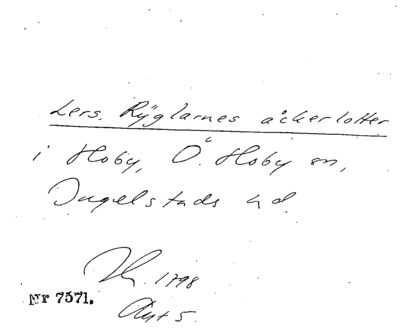 Lers. Ryglarnes åckerlotter
i Hoby, Ö. Hoby sn,
Ingelstads hd.
1798
Nr 7571.
Avt 5.